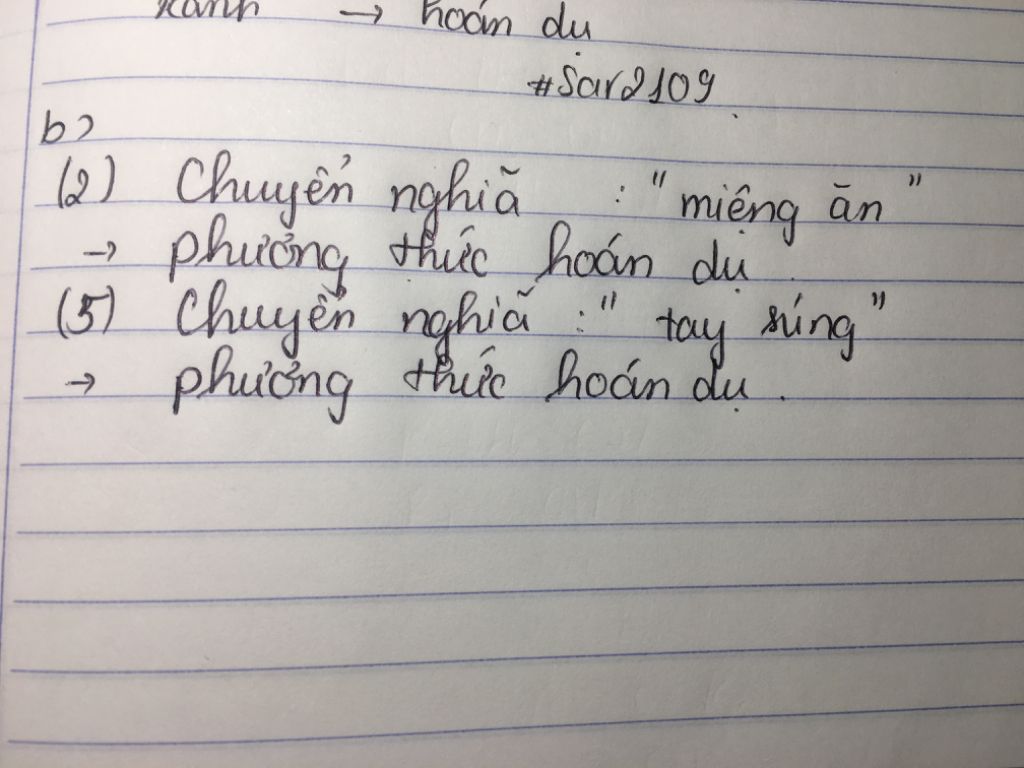 xanh → hoán dụ
#Sar2109
b)
(2) Chuyển nghĩa : "miếng ăn"
→ phương thức hoán dụ.
(5) Chuyển nghĩa : "tay súng"
→ phương thức hoán dụ.